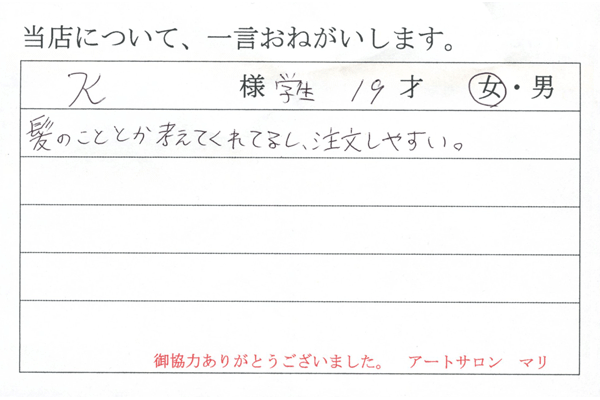 当店について、一言おねがいします。
K 様 学生 19 才 女・男
髪のこととか考えてくれてるし、注文しやすい。
御協力ありがとうございました。 アートサロン マリ